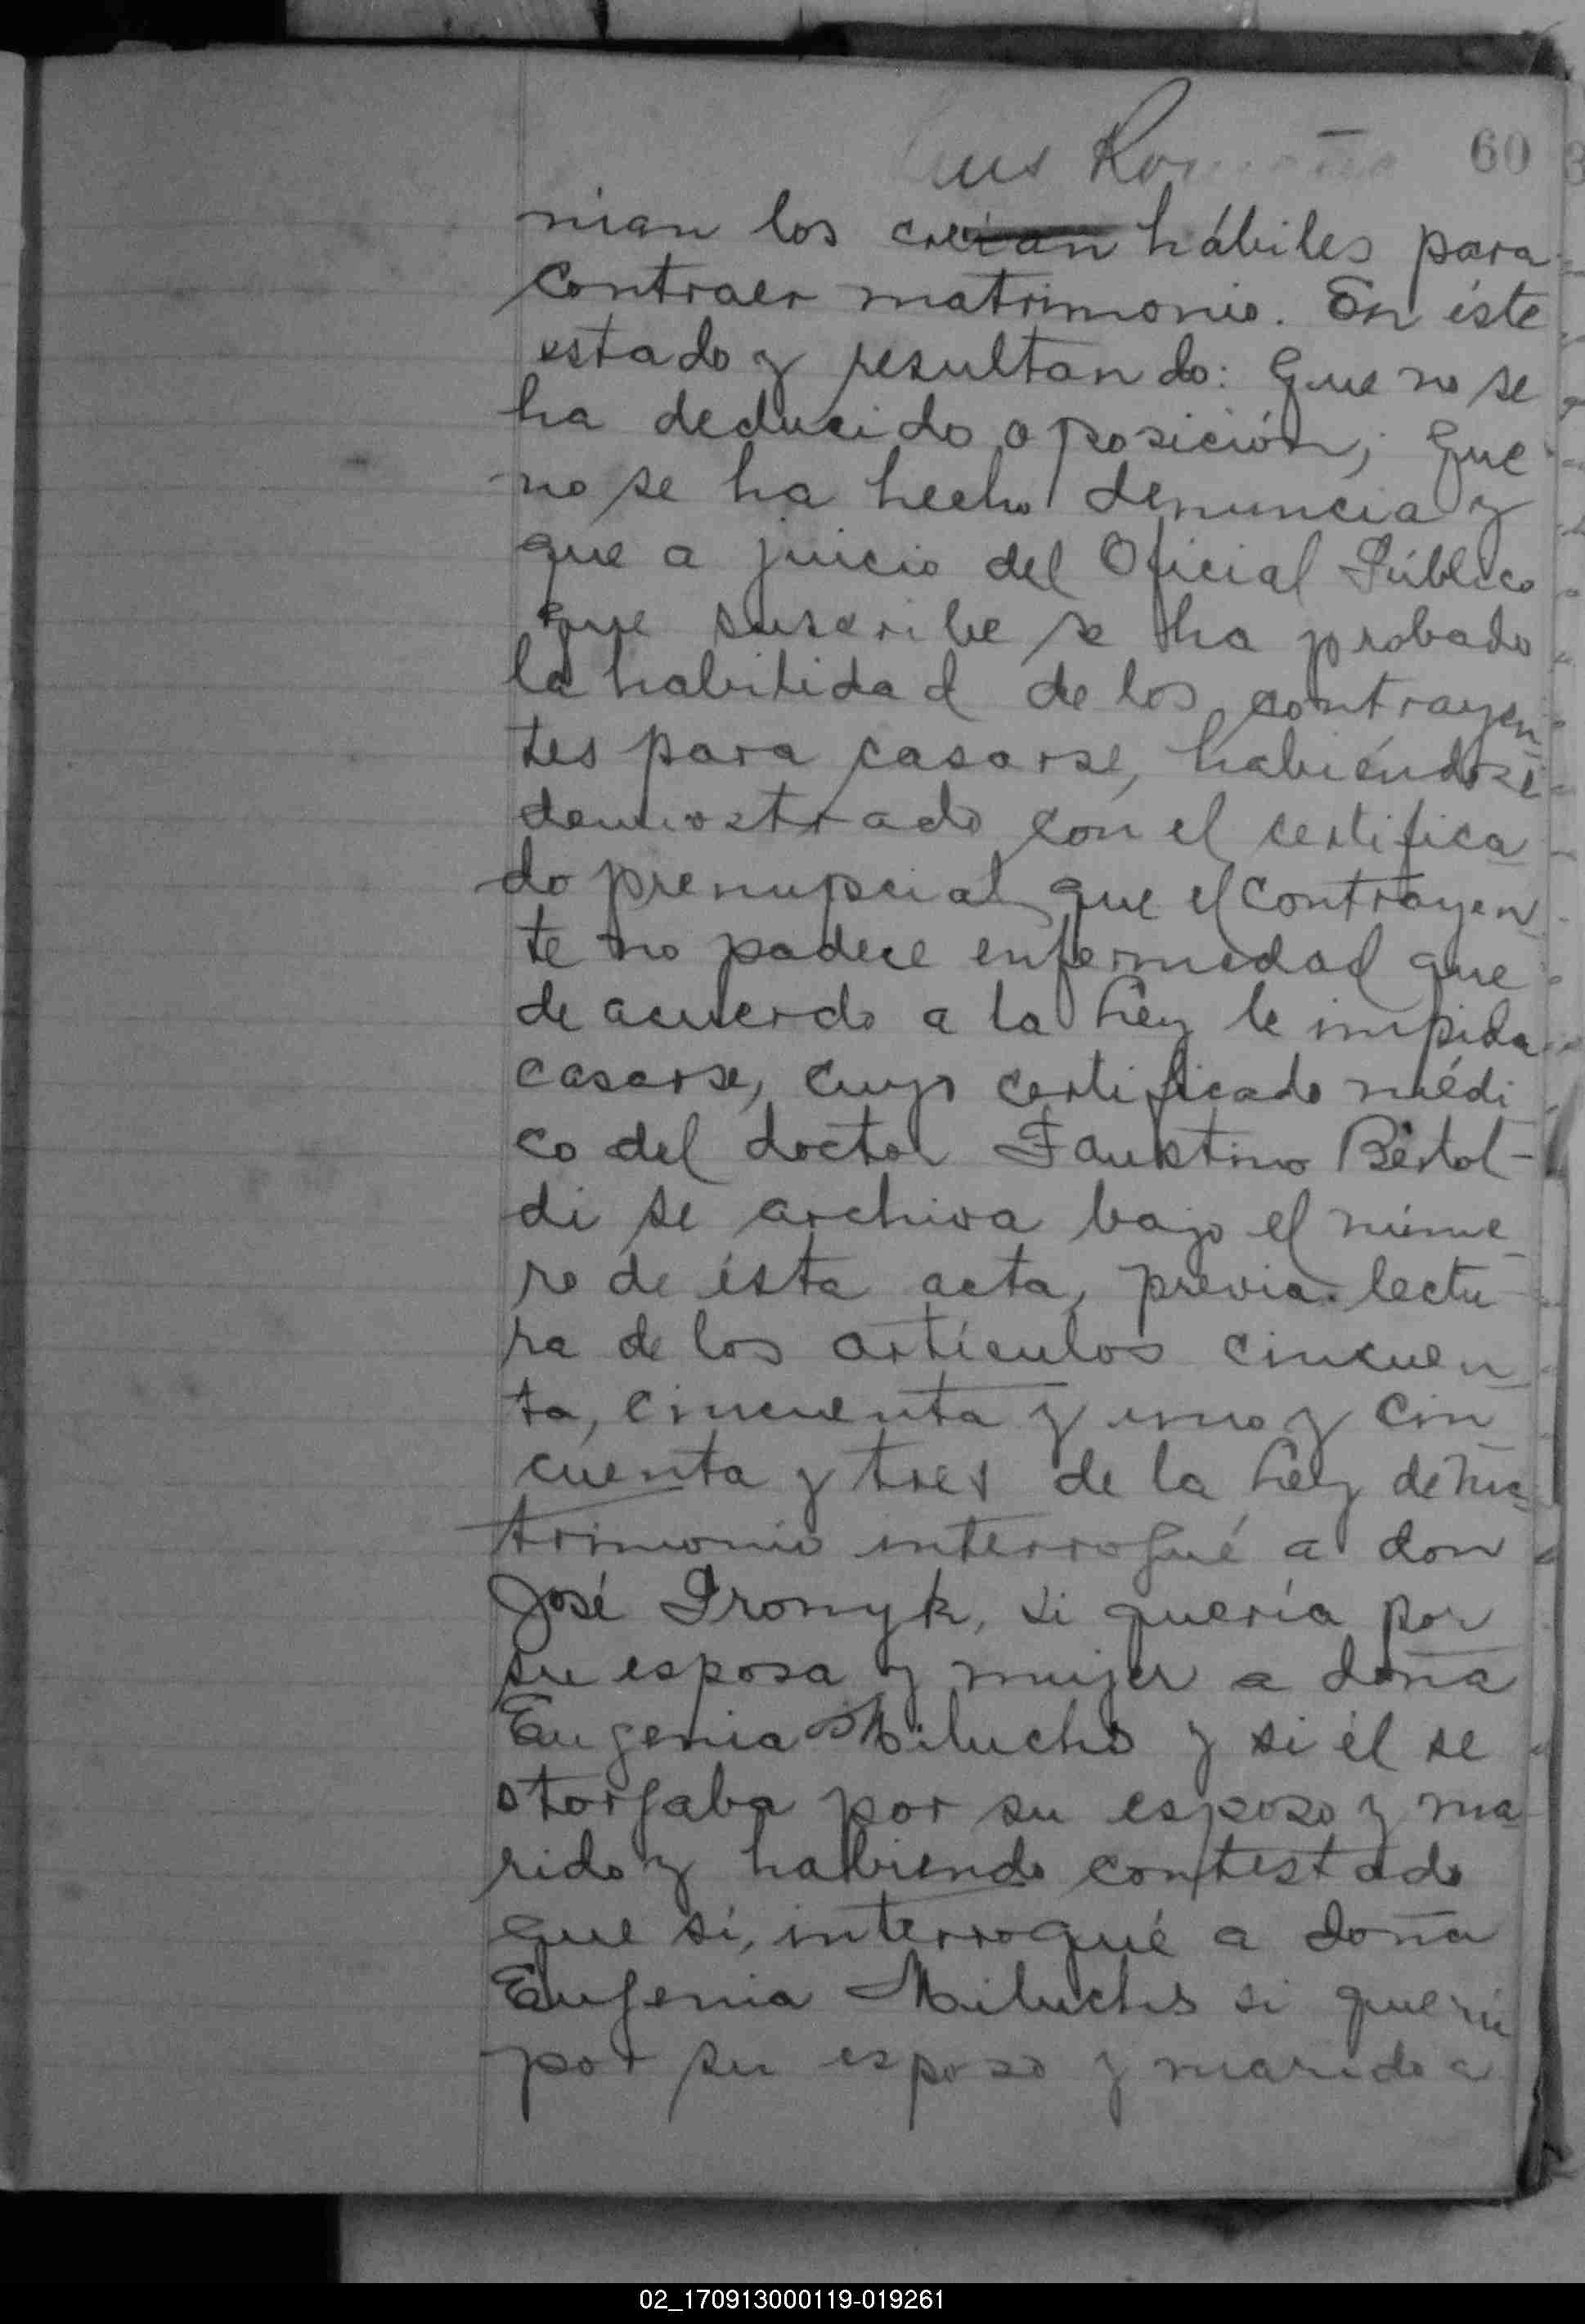 60
nian los creian hábiles para
contraer matrimonio. En éste
estado y resultando: Que no se
ha deducido oposición; Que
no se ha hecho denuncia y
que a juicio del Oficial Público
que suscribe se ha probado
la habilidad de los contrayen
tes para casarse, habiéndose
demostrado con el certifica
do prenupcial que el contrayen
te no padece enfermedad que
de acuerdo a la Ley le impida
casarse, cuyo certificado médi
co del doctor Faustino Bertol-
di se archiva bajo el núme
ro de ésta acta, previa lectu
ra de los artículos cincuen
ta, cincuenta y uno y cin
cuenta y tres de la Ley de Ma
trimonio interrogué a don
José Pronyk, si quería por
su esposa y mujer a doña
Eugenia Miluchs y si él se
otorgaba por su esposo y ma
rido y habiendo contestado
que sí, interrogué a doña
Eugenia Miluchs si quería
por su esposo y marido a
02_170913000119-019261